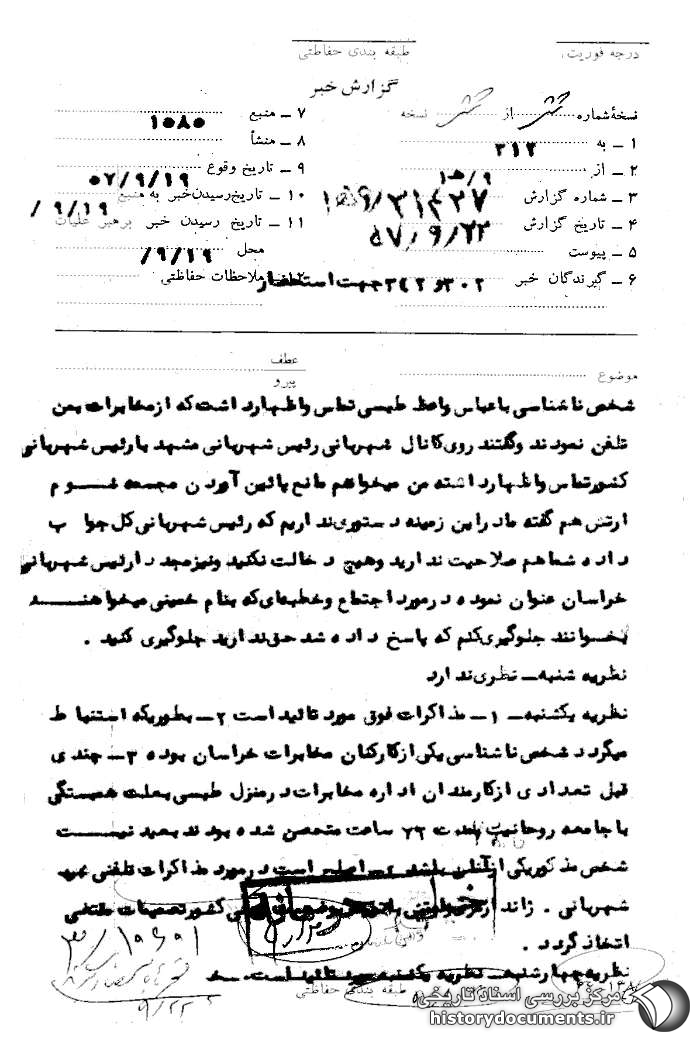 درجه فوریت:
طبقه بندی حفاظتی
گزارش خبر
نسخهٔ شماره شش از شش نسخه
۱ ـ به ۳۱۲
۲ ـ از ۱۵/۹
۳ ـ شماره گزارش ۹/۳۱۴۲۷
۴ ـ تاریخ گزارش ۵۷/۹/۲۲
۵ ـ پیوست
۶ ـ گیرندگان خبر ۳۰۲ و ۳۴۲ جهت استحضار
۷ ـ منبع ۱۰۸۵
۸ ـ منشأ
۹ ـ تاریخ وقوع ۵۷/۹/۱۹
۱۰ ـ تاریخ رسیدن خبر به منبع ۹/۱۹/
۱۱ ـ تاریخ رسیدن خبر برهبر عملیات
محل ۹/۱۹/
۱۲ ـ ملاحظات حفاظتی
موضوع
عطف
پیرو
شخص ناشناسی با عباس واعظ طبسی تماس و اظهار داشت که از مخابرات بمن
تلفن نمودند و گفتند روی کانال شهربانی رئیس شهربانی مشهد با رئیس شهربانی
کشور تماس و اظهار داشته من میخواهم مانع پائین آوردن مجسمه شوم
ارتش هم گفته ما در این زمینه دستوری نداریم که رئیس شهربانی کل جواب
داده شما هم صلاحیت ندارید و هیچ دخالت نکنید و نیز مجددا رئیس شهربانی
خراسان عنوان نموده در مورد اجتماع و خطبه‌ای که بنام خمینی میخواهند
بخوانند جلوگیری کنم که پاسخ داده شد حق ندارید جلوگیری کنید .
نظریه شنبه ـ نظری ندارد
نظریه یکشنبه ـ ۱ ـ مذاکرات فوق مورد تائید است ۲ ـ بطوریکه استنباط
میگردد شخص ناشناسی یکی از کارکنان مخابرات خراسان بوده ۳ ـ چندی
قبل تعدادی از کارمندان اداره مخابرات در منزل طبسی بعلت همبستگی
با جامعه روحانیت بمدت ۷۲ ساعت متحصن شده بودند بعید نیست
شخص مذکور یکی از آنان باشد ۴ ـ اصلح است در مورد مذاکرات تلفنی
شهربانی . ژاندارمری کشور تصمیمات مقتضی
اتخاذ گردد .
نظریه چهارشنبه ـ نظریه یکشنبه مورد تائید است .
طبقه بندی حفاظتی
۹/۲۲
مرکز بررسی اسناد تاریخی
historydocuments.ir